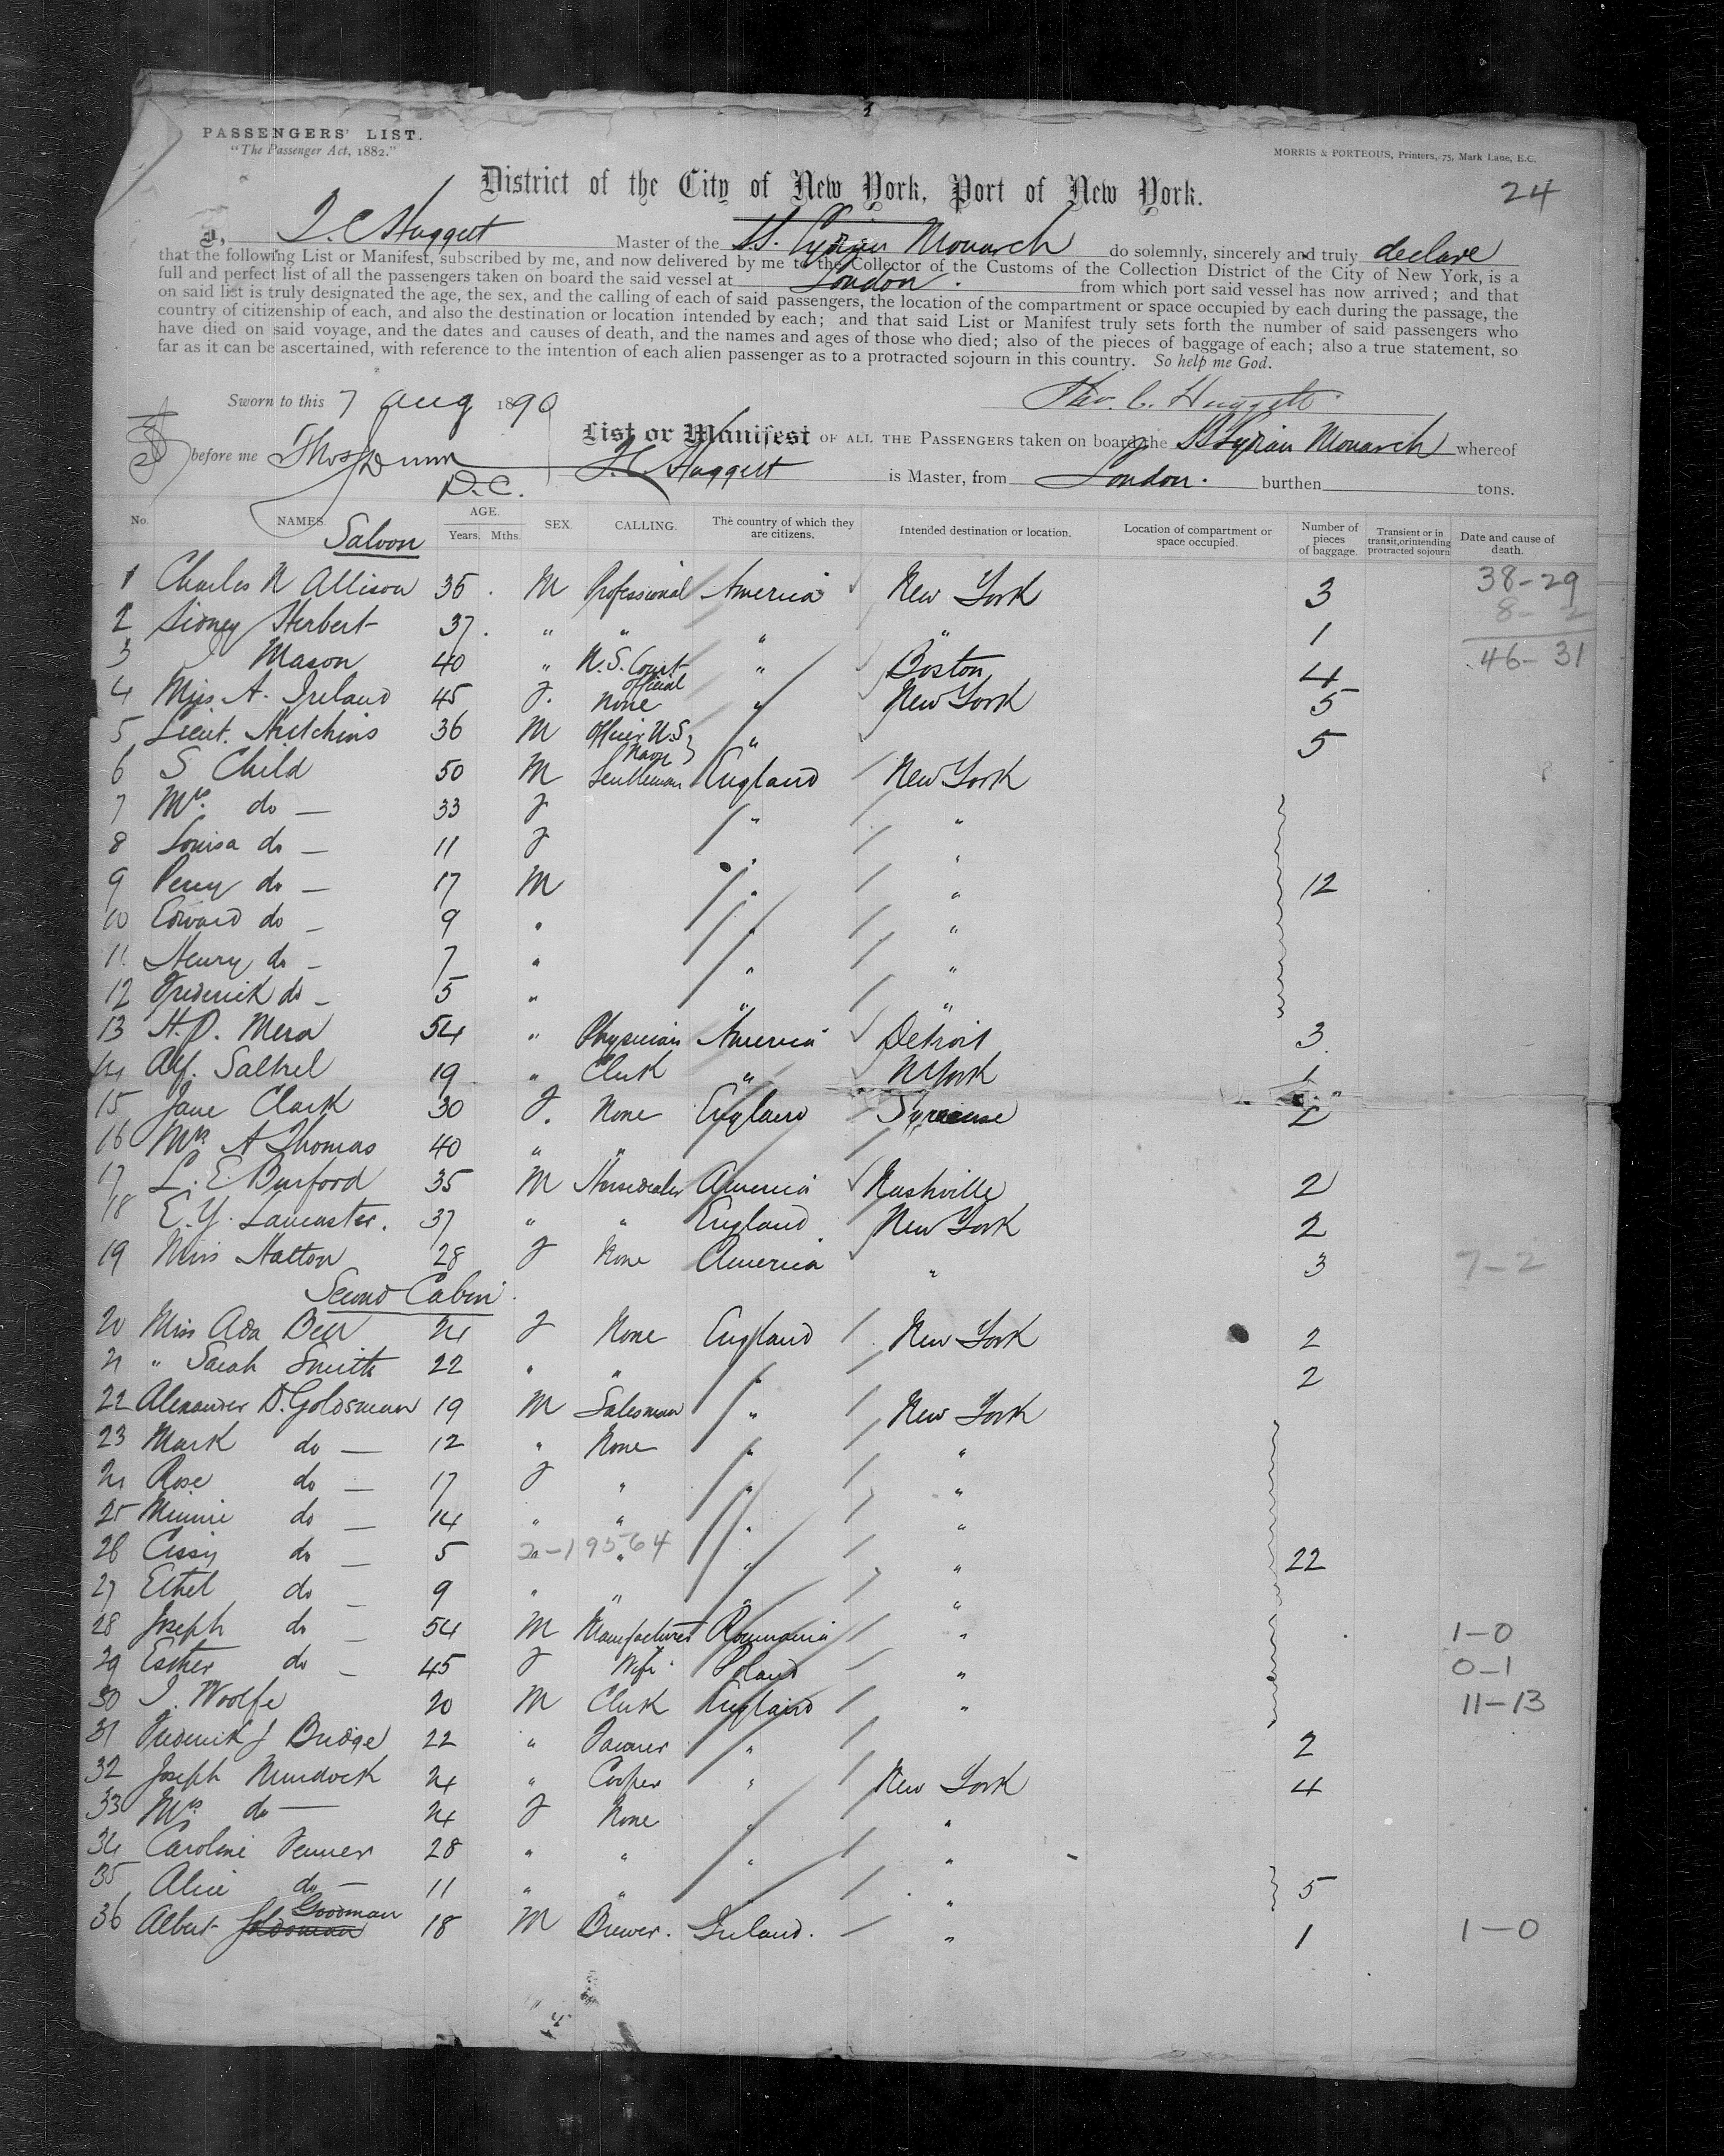 PASSENGERS' LIST.
"The Passenger Act, 1882."
MORRIS & PORTEOUS, Printers, 75, Mark Lane, E.C.
District of the City of New York, Port of New York.
24
I, T. C. Huggett Master of the SS. Lydian Monarch do solemnly, sincerely and truly declare
that the following List or Manifest, subscribed by me, and now delivered by me to the Collector of the Customs of the Collection District of the City of New York, is a
full and perfect list of all the passengers taken on board the said vessel at London. from which port said vessel has now arrived; and that
on said list is truly designated the age, the sex, and the calling of each of said passengers, the location of the compartment or space occupied by each during the passage, the
country of citizenship of each, and also the destination or location intended by each; and that said List or Manifest truly sets forth the number of said passengers who
have died on said voyage, and the dates and causes of death, and the names and ages of those who died; also of the pieces of baggage of each; also a true statement, so
far as it can be ascertained, with reference to the intention of each alien passenger as to a protracted sojourn in this country. So help me God.
Sworn to this 7 Aug 1890
Theo. C. Huggett
before me Thos Dunn
D.C.
List or Manifest OF ALL THE PASSENGERS taken on board the SS Lydian Monarch whereof
T. C. Huggett is Master, from London. burthen tons.
No. NAMES. AGE. Years. Mths. SEX. CALLING. The country of which they are citizens. Intended destination or location. Location of compartment or space occupied. Number of pieces of baggage. Transient or in transit, or intending protracted sojourn Date and cause of death.
Saloon
1 Charles N Allison 35 M Professional America New York 3 38-29
2 Sidney Herbert 37 " " " " 1 8-2
3 Mason 40 " U.S. Court official " Boston 4 46-31
4 Miss A. Ireland 45 F. None " New York 5
5 Lieut. Hutchins 36 M Officer U.S. Navy " 5
6 S Child 50 M Gentleman England New York
7 Mrs. do — 33 F " "
8 Louisa do — 11 F " "
9 Percy do — 17 M " " 12
10 Edward do — 9 " " "
11 Henry do — 7 " " "
12 Frederick do — 5 " " "
13 H. P. Mera 54 " Physician America Detroit 3
14 Alf. Saltrel 19 " Clerk " N York 1
15 Jane Clark 30 F. None England Syracuse 2
16 Mrs A Thomas 40 " "
17 L. E. Burford 35 M Horsedealer America Nashville 2
18 E. Y. Lancaster. 37 " " England New York 2
19 Miss Halton 28 F None America " 3 7-2
Second Cabin
20 Miss Ada Bell 24 F None England New York 2
21 " Sarah Smith 22 " " " 2
22 Alexander D. Goldsman 19 M Salesman " New York
23 Mark do — 12 " None " "
24 Rose do — 17 F " " "
25 Minnie do — 14 " " " "
26 Cissy do — 5 2a-19564 " " " 22
27 Ethel do — 9 " " " "
28 Joseph do — 54 M Manufacturer Roumania " 1-0
29 Esther do — 45 F Wife Poland " 0-1
30 I. Woolfe 20 M Clerk England " 11-13
31 Frederick J Bridge 22 " Farmer " 2
32 Joseph Murdock 24 " Cooper " New York 4
33 Mrs do — 24 F None " "
34 Caroline Fenner 28 " " " "
35 Alice do — 11 " " " 5
36 Albert Goodman 18 M Brewer. Ireland. " 1 1-0